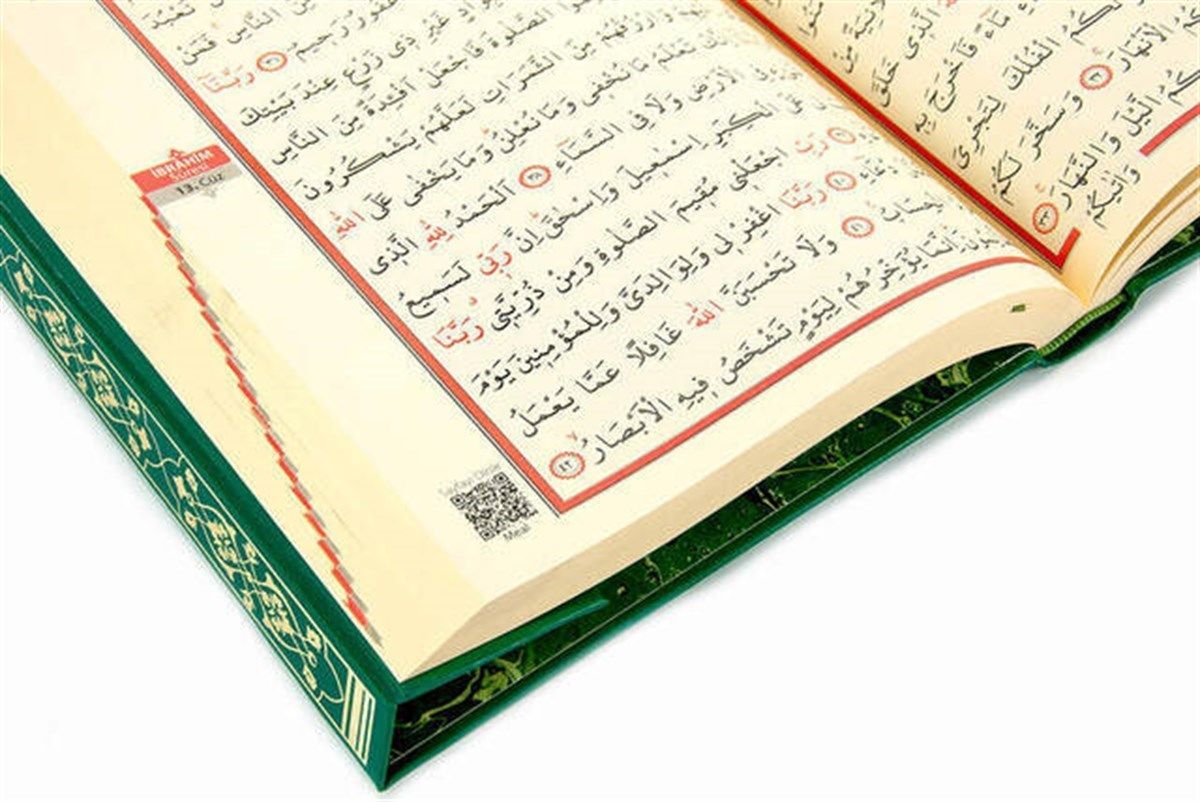 الَّذِى خَلَقَ
مَٓاءً فَاَخْرَجَ بِهِ
لَكُمُ الْفُلْكَ لِتَجْرِىَ
الْاَنْهَارَ ﴿٣٢﴾ وَسَخَّرَ لَكُمُ
الَّيْلَ وَالنَّهَارَ ﴿٣٣﴾
وَاٰتٰيكُمْ
مِنَ النَّاسِ فَمَنْ
غَفُورٌ رَحِيمٌ ﴿٣٦﴾ رَبَّنَٓا
غَيْرِ ذِى زَرْعٍ عِنْدَ بَيْتِكَ
الصَّلٰوةَ فَاجْعَلْ اَفْـِٔدَةً مِنَ النَّاسِ
وَارْزُقْهُمْ مِنَ الثَّمَرَاتِ لَعَلَّهُمْ يَشْكُرُونَ
تَعْلَمُ مَا نُخْفِى وَمَا نُعْلِنُ وَمَا يَخْفٰى عَلَى اللّٰهِ
فِى الْاَرْضِ وَلَا فِى السَّمَٓاءِ ﴿٣٨﴾ اَلْحَمْدُ لِلّٰهِ الَّذِى
عَلَى الْكِبَرِ اِسْمٰعِيلَ وَاِسْحٰقَ اِنَّ رَبِّى لَسَمِيعُ
رَبِّ اجْعَلْنِى مُقِيمَ الصَّلٰوةِ وَمِنْ ذُرِّيَّتِى رَبَّنَا
دُعَٓاءِ ﴿٤٠﴾ رَبَّنَا اغْفِرْ لِى وَلِوَالِدَىَّ وَلِلْمُؤْمِنِينَ يَوْمَ
الْحِسَابُ ﴿٤١﴾ وَلَا تَحْسَبَنَّ اللّٰهَ غَافِلًا عَمَّا يَعْمَلُ
اِنَّمَا يُؤَخِّرُهُمْ لِيَوْمٍ تَشْخَصُ فِيهِ الْاَبْصَارُ ﴿٤٢﴾
İBRAHİM
Sûresi
13. Cüz
Meal